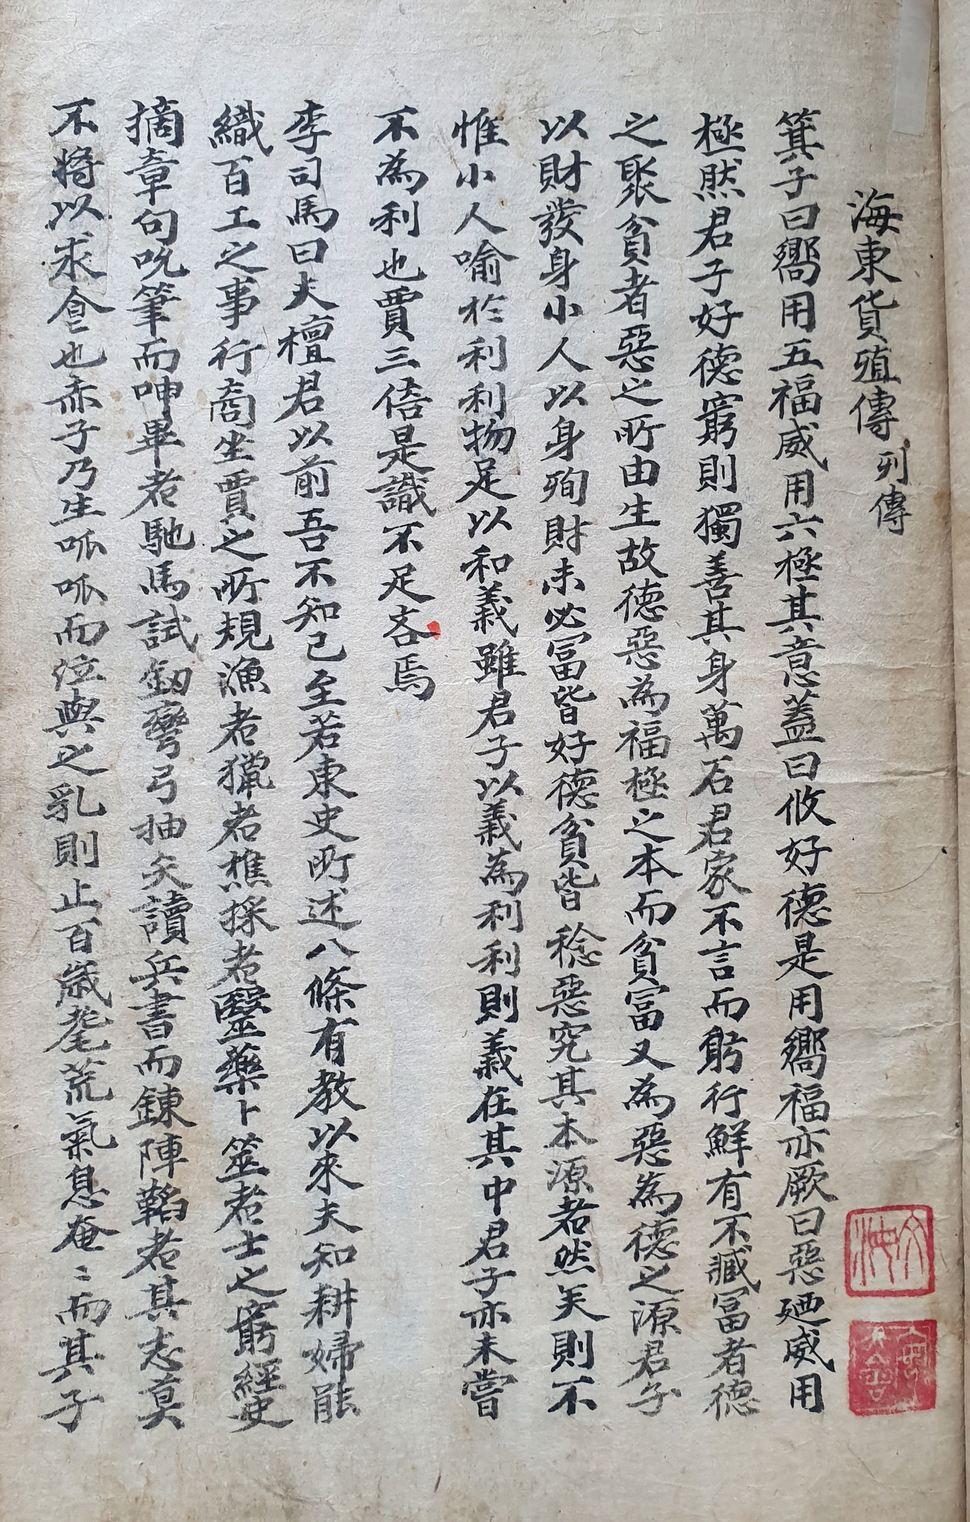 海東貨殖傳
列傳
箕子曰嚮用五福威用六極其意蓋曰攸好德是用嚮福亦厥曰惡廼威用
極然君子好德窮則獨善其身萬石君家不言而躬行鮮有不臧冨者德
之聚貧者惡之所由生故德惡為福極之本而貧冨又為惡為德之源君子
以財發身小人以身殉財未必冨皆好德貧皆稔惡究其本源者然矣則不
惟小人喻於利利物足以和義雖君子以義為利利則義在其中君子亦未嘗
不為利也賈三倍是識不足吝焉
李司馬曰夫檀君以前吾不知已至若東史所述八條有教以來夫知耕婦能
織百工之事行商坐賈之所規漁者獵者樵採者醫藥卜筮者士之窮經史
摘章句吮筆而呻畢者馳馬試劒彎弓抽矢讀兵書而鍊陣韜者其志莫
不將以求食也赤子乃生呱呱而泣與之乳則止百歲耄荒氣息奄〻而其子